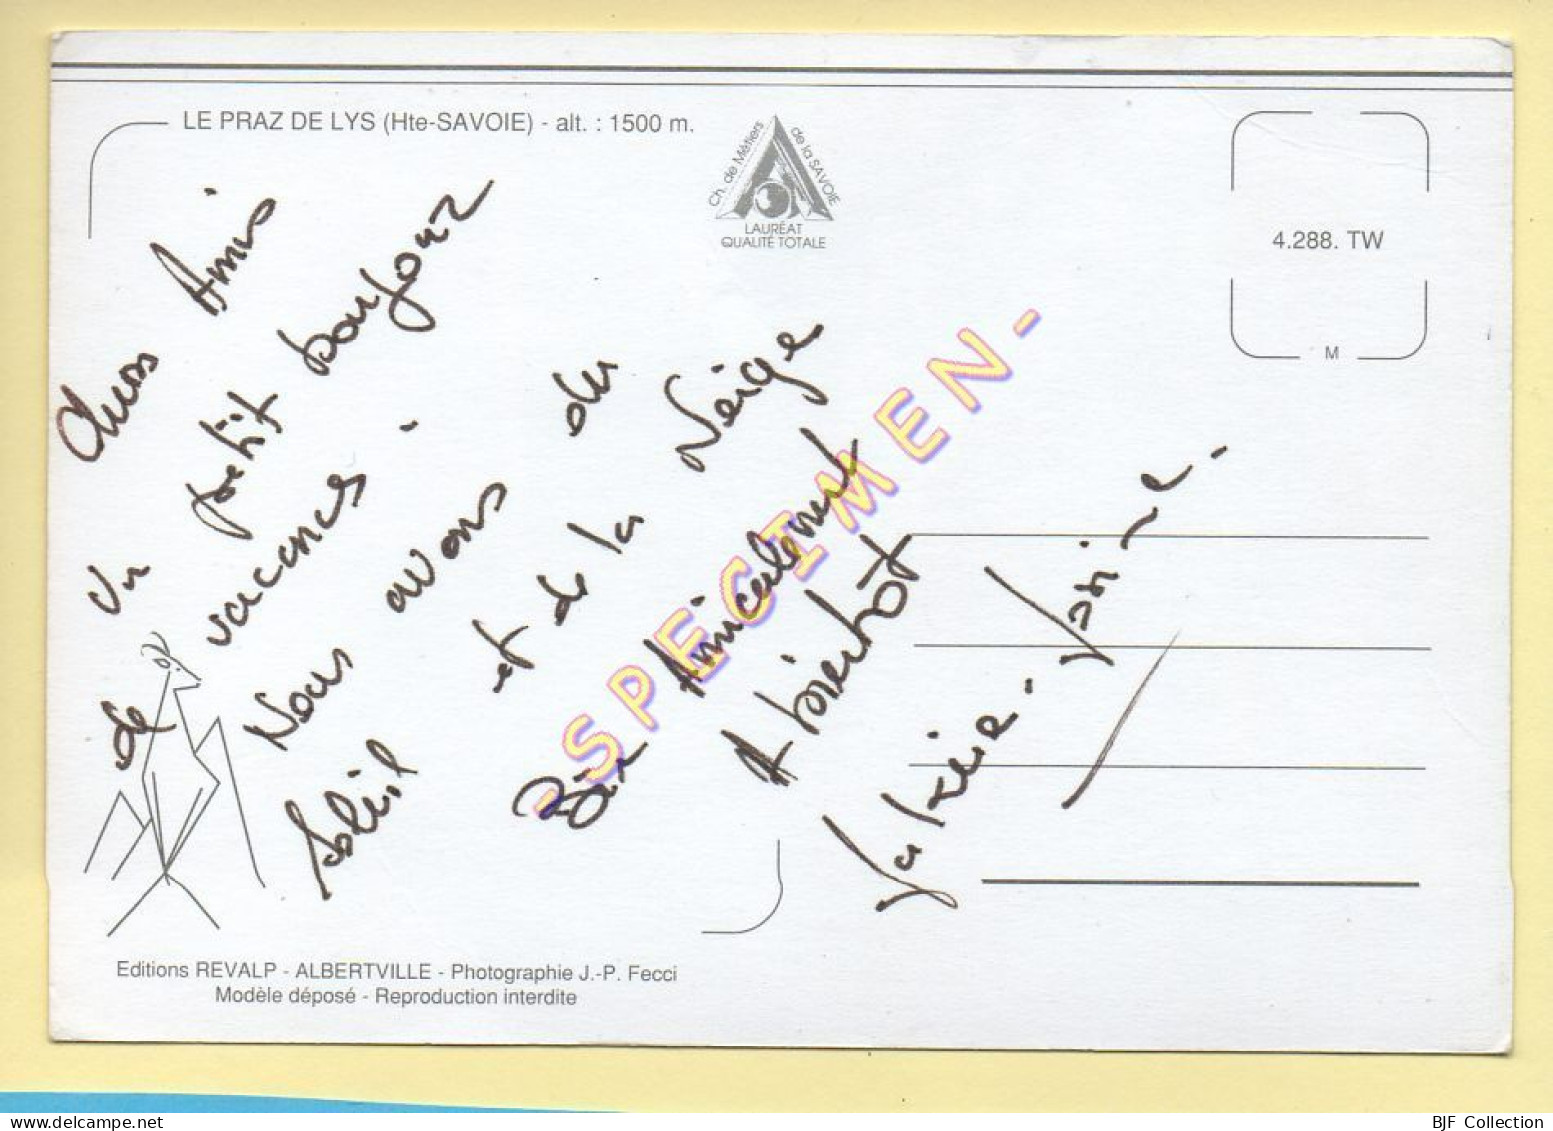 LE PRAZ DE LYS (Hte-SAVOIE) - alt. : 1500 m.
Ch. de Métiers de la SAVOIE
LAURÉAT
QUALITÉ TOTALE
4.288. TW
M
Chers Amis
Un petit bonjour
de vacances.
Nous avons du
Soleil et de la Neige
Bien Amicalement
A bientôt
- SPECIMEN -
Editions REVALP - ALBERTVILLE - Photographie J.-P. Fecci
Modèle déposé - Reproduction interdite
BJF Collection